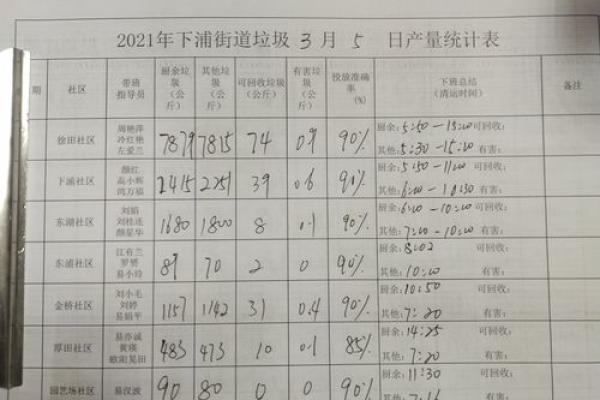 2021年下浦街道垃圾 3 月 5 日产量统计表
期 社区 带班指导员 厨余垃圾（公斤） 其他垃圾（公斤） 可回收垃圾（公斤） 有害垃圾（公斤） 投放准确率（%） 下班总结（清运时间） 备注
徐田社区 周艳萍 冷红艳 左爱兰 7879 7815 74 0.9 90% 厨余:5:50-15:00可回收: 其他:5:30-15:20有害:
下浦社区 颜红 高小辉 鸿万福 2415 2251 39 0.6 90% 厨余:5:50-11:00可回收: 其他:6:00-10:30有害:
东湖社区 刘娟 刘桂连 颜星华 1680 1800 8 0.1 90% 厨余:6:00-10:30可回收: 其他:7:00-10:00有害:
东浦社区 江有兰 罗赟 易小玲 89 70 2 0 90% 厨余:8:02 可回收: 其他:10:20 有害:
金桥社区 刘小毛 刘婷 易娟平 1157 1142 31 0.4 90% 厨余:10:50 可回收: 其他:7:20 有害:
厚田社区 易亦诚 黄瑛 欧阳晃田 483 473 10 0.1 85% 厨余:14:25 可回收: 其他:7:20 有害:
园艺场社区 易汉波 90 80 0 0 90% 厨余:11:30 可回收: 其他:7:16 有害: